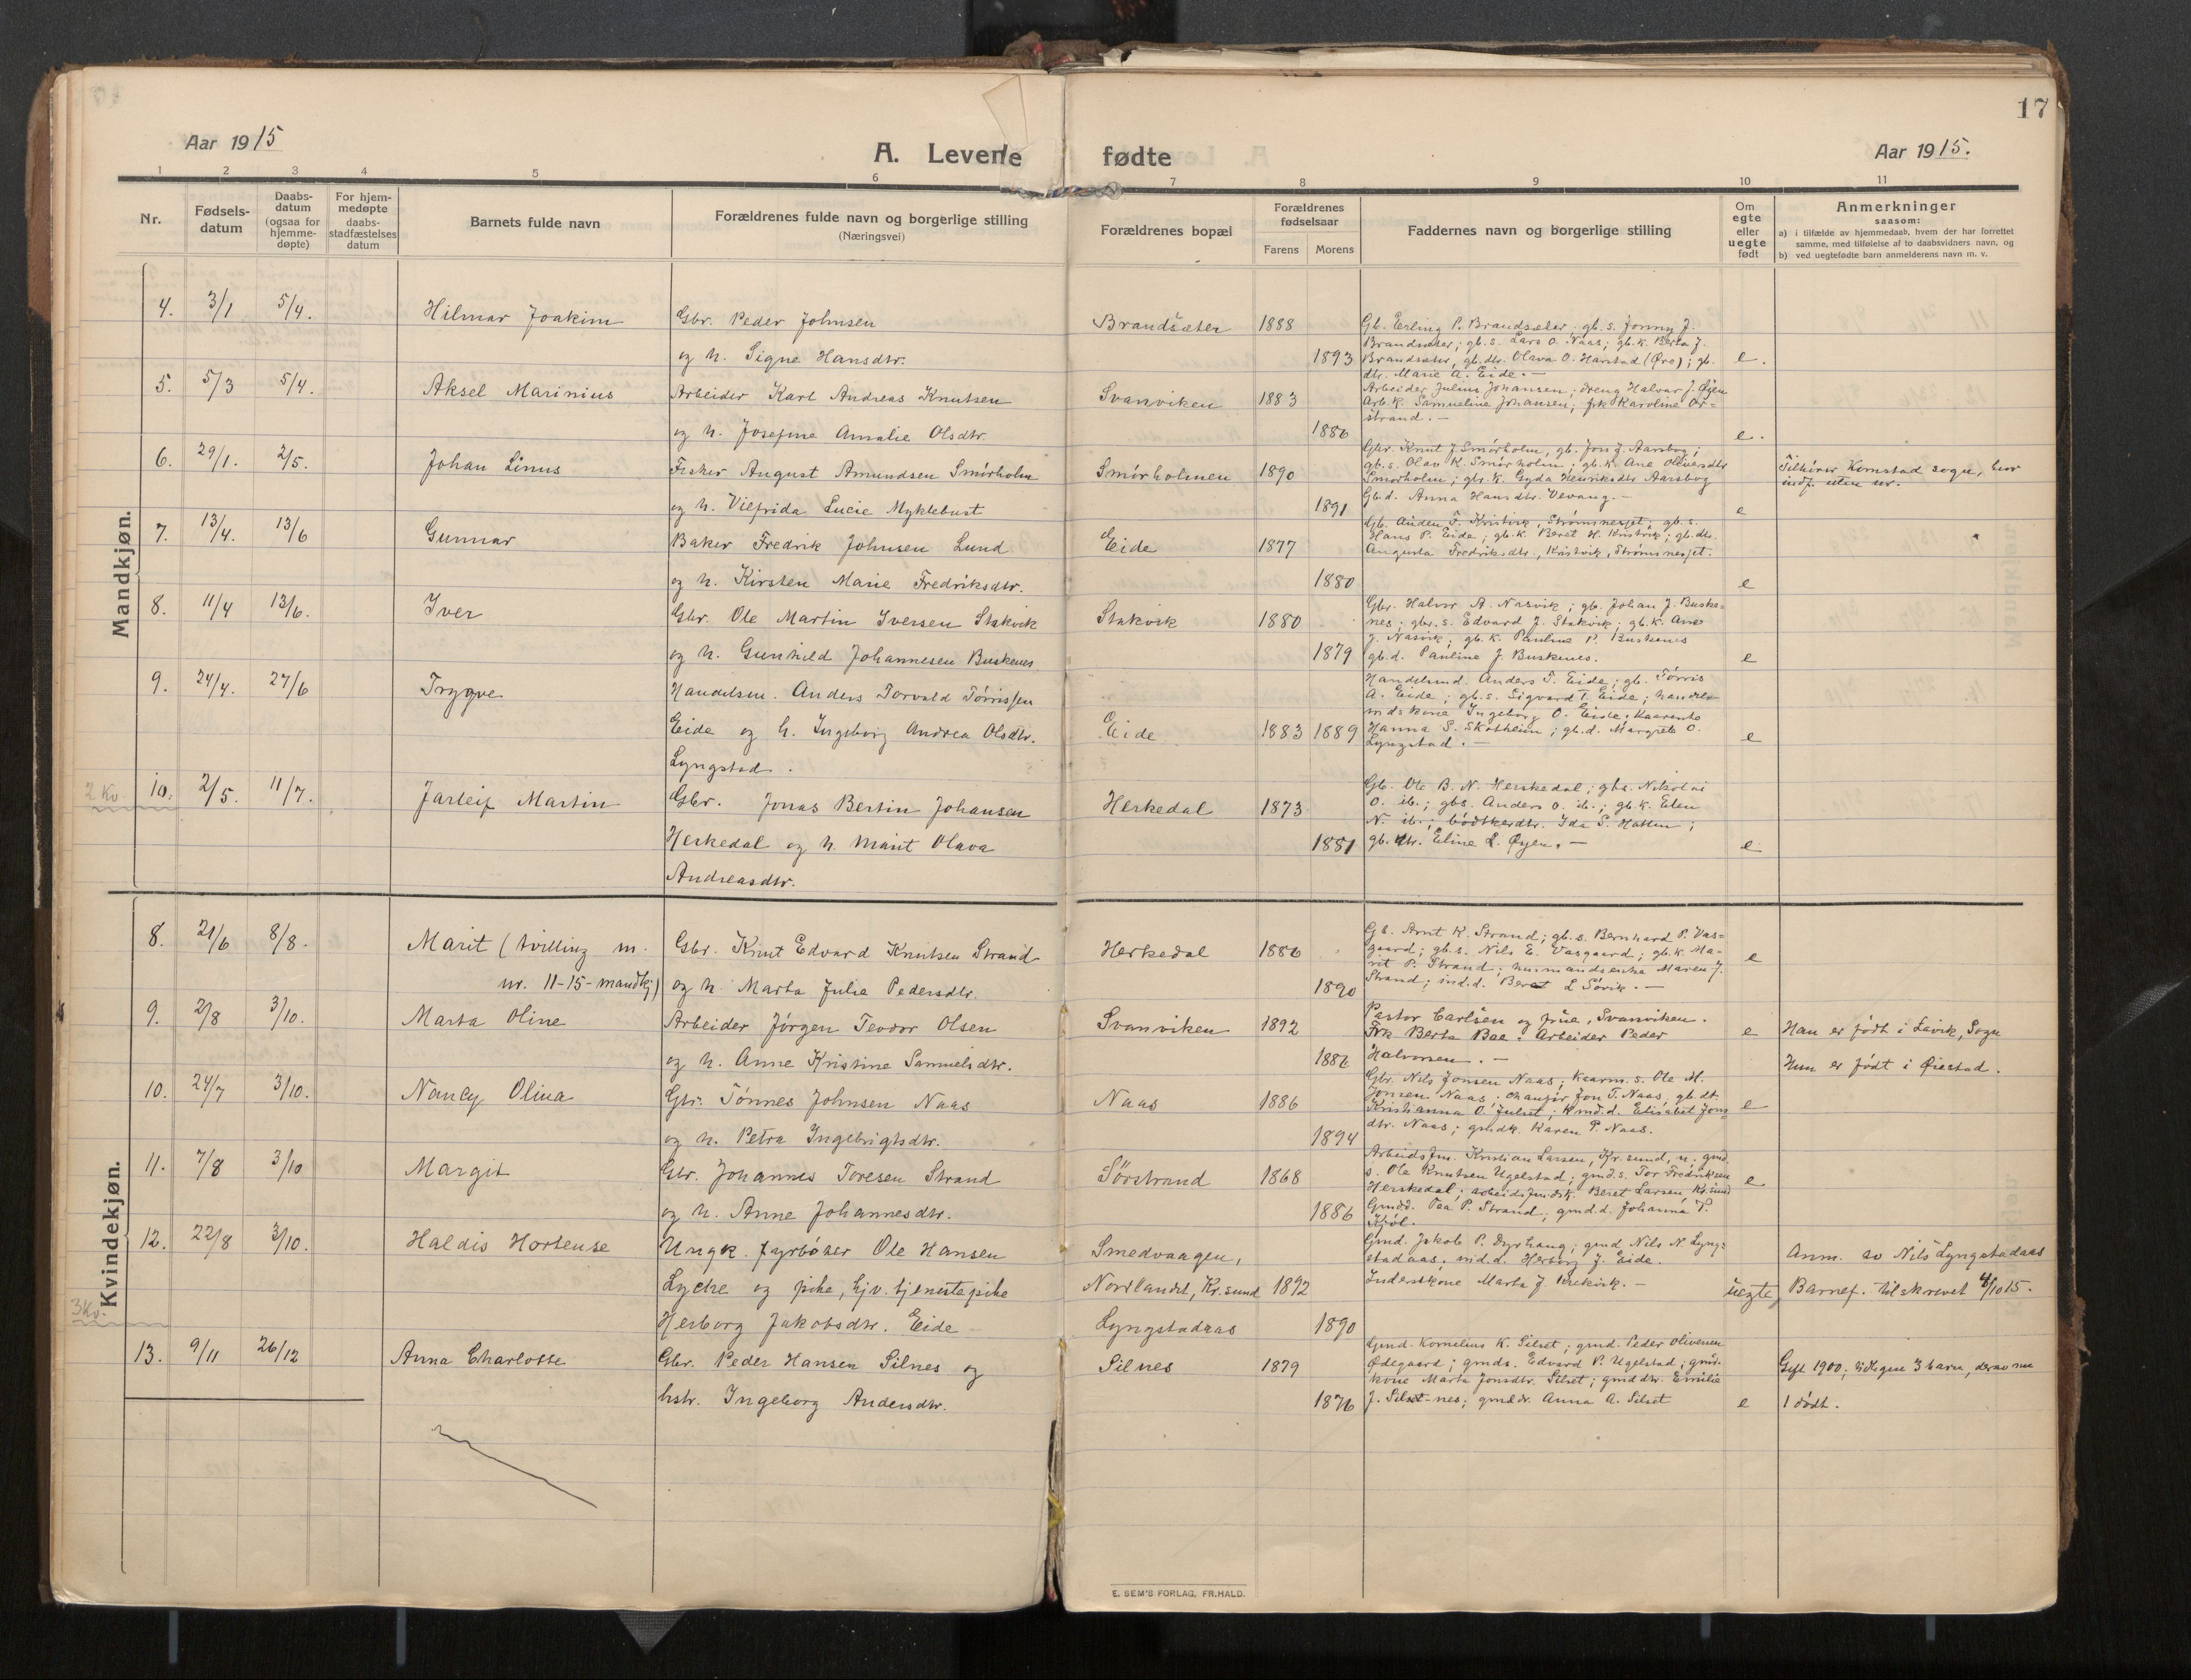 17
Aar 1915
A. Levende fødte
Aar 1915.
1 2 3 4 5 6 7 8 9 10 11
Nr.
Fødsels-
datum
Daabs-
datum
(ogsaa for
hjemme-
døpte)
For hjem-
medøpte
daabs-
stadfæstelses
datum
Barnets fulde navn
Forældrenes fulde navn og borgerlige stilling
(Næringsvei)
Forældrenes bopæl
Forældrenes
fødselsaar
Farens Morens
Faddernes navn og borgerlige stilling
Om
egte
eller
uegte
født
Anmerkninger
saasom:
a) i tilfælde av hjemmedaab, hvem der har forrettet
samme, med tilføielse af to daabsvidners navn, og
b) ved uegtefødte barn anmelderens navn m. v.
Mandkjøn.
4. 3/1 5/4. Hilmar Joakim
Gbr. Peder Johnsen
og h. Signe Hansdtr.
Brandsæter 1888
1893
Gb. Erling P. Brandsæter; gb. s. Jonny J.
Brandsæter; gb. s. Lars O. Naas; gb. k. Berta J.
Brandsæter, gb. dtr. Olava O. Harstad (Øre); gb.
dtr. Marie A. Eide. —
e.
5. 5/3 5/4. Aksel Marinius
Arbeider Karl Andreas Knutsen
og h. Josefine Amalie Olsdtr.
Svanviken 1883
1886
Arbeider Julius Johansen; dreng Halvar J. Øyen
Arb. k. Samueline Johansen; frk Karoline Ør-
strand. —
e.
6. 29/1. 2/5. Johan Linus
Fisker August Amundsen Smörholm
og h. Vilfrida Lucie Myklebust
Smörholmen 1890
1891
Gbr. Knut J. Smörholm, gb. Jon J. Aarsbog;
gb. s. Olav K. Smörholm; gb. k. Ane Oliversdtr
Smörholm; gb. k. Gyda Henriksdtr Aarsbog
Gb. d. Anna Hansdtr. Vevang. —
e
Tilhører Kornstad sogn, her
indf. uten nr.
7. 13/4. 13/6 Gunnar
Baker Fredrik Johnsen Lund
og h. Kirsten Marie Fredriksdtr.
Eide 1877
1880
Gb. Auden F. Kristvik, Strømsneset; gb. s.
Hans P. Eide; gb. k. Beret H. Kristvik; gb. dtr.
Augusta Fredriksdtr., Kristvik, Strømsneset.
e
8. 11/4 13/6. Iver
Gbr. Ole Martin Iversen Stakvik
og h. Gunhild Johannesen Buskenes
Stakvik 1880
1879
Gbr. Halvor A. Nasvik; gb. Johan J. Buske-
nes; gbr. s. Edvard J. Stakvik; gb. k. Ane
J. Nasvik; gb. k. Pauline P. Buskenes
gb. d. Pauline J. Buskenes.
e
9. 24/4. 27/6 Trygve
Handelsm. Anders Torvald Törrissen
Eide og h. Ingeborg Andrea Olsdtr.
Lyngstad.
Eide 1883 1889
Handelsmd. Anders T. Eide; gb. Törris
A. Eide; gb. s. Sigvard T. Eide; handels-
mdskone Ingeborg O. Eide;
Hanna S. Skotheim; gb. d. Margrete O.
Lyngstad. —
e
2 Kv
10. 2/5. 11/7. Jarleif Martin
Gbr. Jonas Bertin Johansen
Herskedal og h. Marit Olava
Andreasdtr.
Herskedal 1873
1881
Gb. Ole B. N. Herskedal; gbs. Nikolai
O. ib.; gbs. Anders O. ib.; gb. k. Elen
N. ib.; bödtkerdtr. Ida P. Hatten;
gb. dtr. Eline L. Øyen. —
e
Kvindekjøn.
8. 21/6 8/8. Marit (tvilling m.
nr. 11-15-mandkj)
Gbr. Knut Edvard Knutsen Strand
og h. Marta Julie Pedersdtr.
Herkedal 1886
1890
Gb. Arnt K. Strand; gb. s. Bernhard P. Vas-
gaard; gb. s. Nils E. Vasgaard; gb. k. Ma-
rit P. Strand; husmandsenke Maren J.
Strand; ind. d. Beret L Sövik. —
e
9. 2/8 3/10. Marta Oline
Arbeider Jörgen Teodor Olsen
og h. Anne Kristine Samuelsdtr.
Svanviken 1892
1886
Pastor Carlsen og frue, Svanviken.
Frk Berta Boe. Arbeider Peder
Halvorsen. —
e
Han er født i Lavik, Sogn
Hun er født i Øiestad.
10. 24/7 3/10. Nancy Olina
Gbr. Tönnes Johnsen Naas
og h. Petra Ingebrigtsdtr.
Naas 1886
1894
Gbr. Nils Jonsen Naas; kaarm. s. Ole M.
Jonsen Naas; chauför Jon T. Naas, gb. dt.
Kristianna O. Julset; kmd. d. Elisabet Jons-
dtr. Naas; gmdk. Karen P. Naas.
e
11. 7/8 3/10 Margit
Gbr. Johannes Toresen Strand
og h. Anne Johannesdtr.
Sörstrand 1868
1886
Arbeidsfm. Kristian Larsen, Kr. sund, n. gmd.
s. Ole Knutsen Ugelstad; gmd. s. Tor Fredriksen
Herskedal; arbeidsfmdsk. Beret Larsen, Kr. sund
Gmdd. Pea P. Strand; gmd. d. Johanna P.
Kjöl.
e
12. 22/8 3/10. Haldis Hortense
Ungk. fyrböter Ole Hansen
Lycke og pike, hjv. tjenestepike
Herborg Jakobsdtr. Eide
Smedvaagen,
Nordlandet, Kr. sund 1892
Lyngstadaas 1890
Gmd. Jakob P. Dyrhaug; gmd Nils N. Lyng-
stadaas, ind. d. Herborg J. Eide.
Inderstkone Marta J. —
uegte
Anm. av Nils Lyngstadaas
Barnef. tilskrevet 4/10 15.
3 Kv.
13. 9/11 26/12 Anna Charlotte
Gbr. Peder Hansen Silnes og
hstr. Ingeborg Andersdtr.
Silnes 1879
1876
Gmd. Kornelius K. Silset; gmd. Peder Olivesen
Ødegaard; gmds. Edvard P. Ugelstad; gmd.
kone Marta Jonsdtr. Silset; gmddtr. Emilie
J. Silset-nes; gmddr. Anna A. Silset
e
Gift 1900; tidligere 3 barn, derav nu
1 dödt.
E. SEM'S FORLAG, FR.HALD.